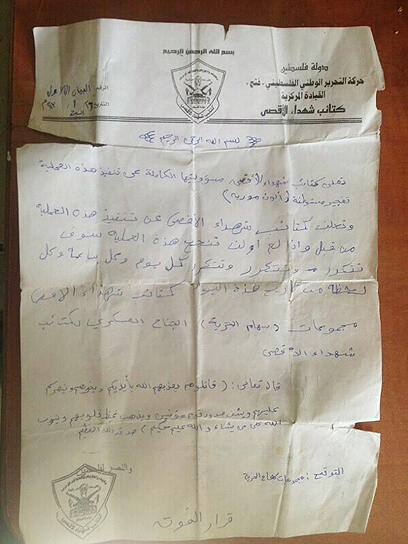 بسم الله الرحمن الرحيم
دولة فلسطين
حركة التحرير الوطني الفلسطيني - فتح -
القيادة المركزية
كتائب شهداء الأقصى
الرقم
التاريخ
بسم الله الرحمن الرحيم
تعلن كتائب شهداء الأقصى مسؤوليتها الكاملة عن تنفيذ هذه العملية
تفجير مستوطنة (ألون موريه)
وتعلن كتائب شهداء الأقصى عن تنفيذ هذه العملية
من قبل وإذا لم تنجح هذه العملية سوف
تتكرر وتتكرر وتتكرر كل يوم وكل ساعة وكل
لحظة من هذه كتائب شهداء الأقصى
مجموعات (سهام الحرية) الجناح العسكري لكتائب
شهداء الأقصى
قال تعالى: (قاتلوهم يعذبهم الله بأيديكم ويخزهم وينصركم
عليهم ويشف صدور قوم مؤمنين ويذهب غيظ قلوبهم ويتوب
الله على من يشاء والله عليم حكيم) صدق الله العظيم
التوقيع: مجموعات سهام الحرية